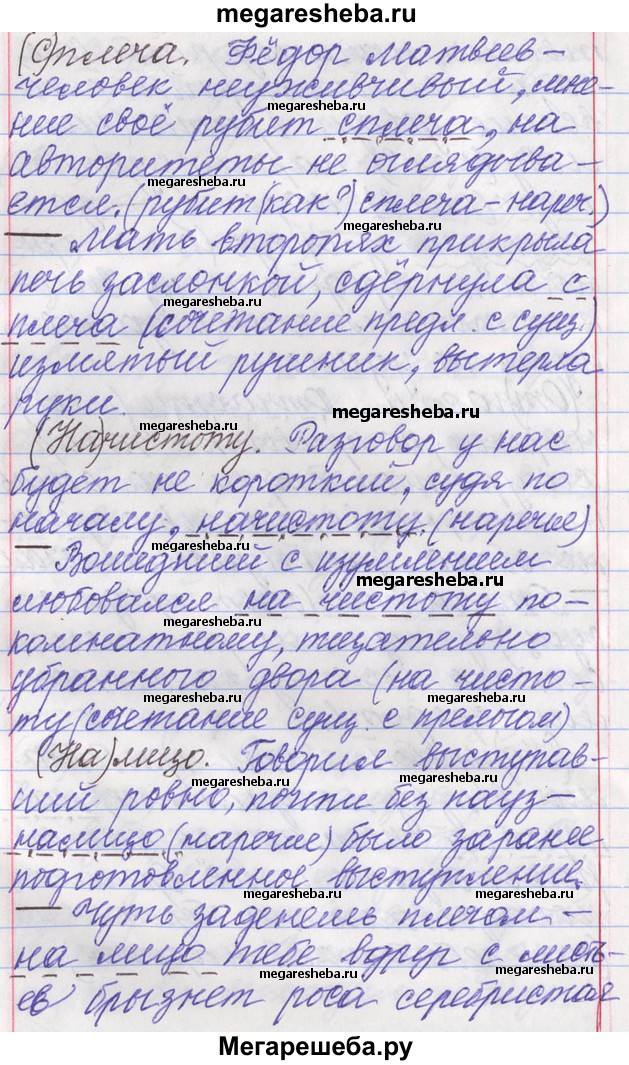 megaresheba.ru
(С)плеча. Фёдор Матвеев –
человек неуживчивый, мне-
megaresheba.ru
ние своё рубит сплеча, на
авторитеты не оглядыва-
megaresheba.ru
ется. (рубит (как?) сплеча – нареч.)
Мать второпях прикрыла
megaresheba.ru
печь заслонкой, сдёрнула с
megaresheba.ru
плеча (сочетание предл. с сущ.)
измятый ручник, вытерла
руки.
megaresheba.ru
megaresheba.ru
(На)чистоту. Разговор у нас
megaresheba.ru
будет не короткий, судя по
началу, начистоту. (наречие)
megaresheba.ru
Вошедший с изумлением
megaresheba.ru
любовался на чистоту по-
megaresheba.ru
комнатному, тщательно
megaresheba.ru
убранного двора (на чисто-
megaresheba.ru
ту (сочетание сущ. с предлогом)
(На)лицо. Говорил выступав-
megaresheba.ru
ший ровно, почти без пауз –
megaresheba.ru
налицо (наречие) было заранее
подготовленное выступление.
megaresheba.ru
Чуть заденешь плечом –
megaresheba.ru
на лицо тебе вдруг с листь-
megaresheba.ru
ев брызнет роса серебристая
megaresheba.ru
Мегарешеба.ру